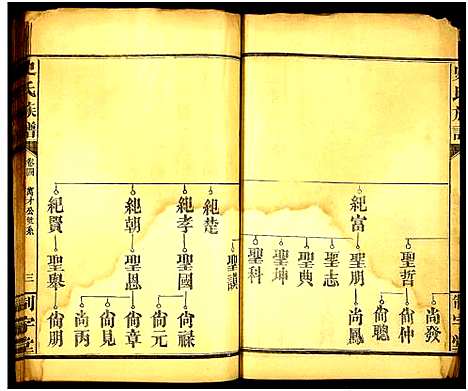 氏族譜
聖哲
尚發
尚仲
尚聰
紀富
聖朋
尚鳳
聖志
聖典
聖坤
聖科
紀楚
紀孝
聖國
尚祿
尚元
紀朝
聖恩
尚章
尚見
尚丙
紀賢
聖舉
尚朋
史氏族譜
卷四
萬才公世系
三